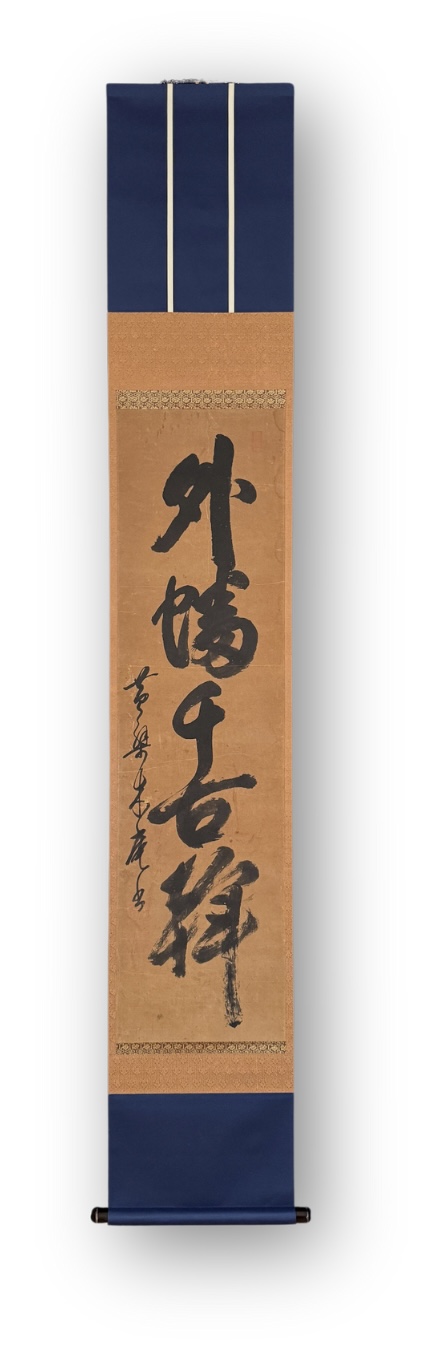 外幡千古輝
黄檗木庵書